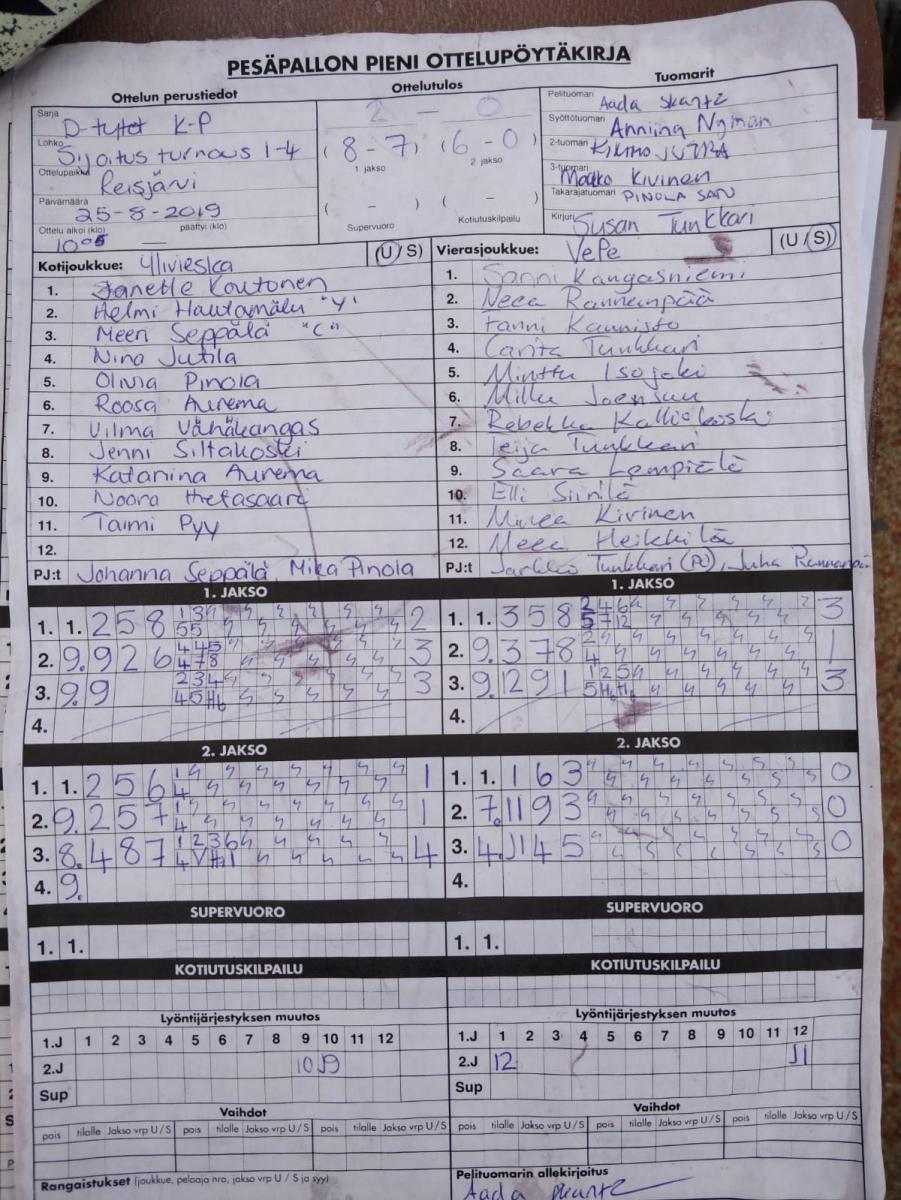 PESÄPALLON PIENI OTTELUPÖYTÄKIRJA
Ottelun perustiedot
Sarja D-tytöt K-P
Lohko Sijoitus turnaus 1-4
Ottelupaikka Reisjärvi
Päivämäärä 25-8-2019
Ottelu alkoi (klo) päättyi (klo)
10 05 —
Ottelutulos
2 – 0
(8-7) (6-0)
1. jakso 2. jakso
( - ) ( - )
Supervuoro Kotiutuskilpailu
Tuomarit
Pelituomari Aada Skantz
Syöttötuomari Anniina Nyman
2-tuomari KIMMO JUTILA
3-tuomari Marko Kivinen
Takarajatuomari PINOLA SATU
Kirjuri Susan Tunkkari
Kotijoukkue: Ylivieska (U/S)
1. Janette Koutonen
2. Helmi Hautamäki "V"
3. Meeri Seppälä "C"
4. Nina Jutila
5. Olivia Pinola
6. Roosa Aurema
7. Vilma Vähäkangas
8. Jenni Siltakoski
9. Katariina Aurema
10. Noora Hietasaari
11. Taimi Pyy
12.
PJ:t Johanna Seppälä, Mika Pinola
Vierasjoukkue: VePe (U/S)
1. Sanni Kangasniemi
2. Neea Rannanpää
3. Fanni Kaunisto
4. Carita Tunkkari
5. Minttu Isojoki
6. Milla Joensuu
7. Rebekka Kalliokoski
8. Peija Tunkkari
9. Saara Lempiälä
10. Elli Siirilä
11. Minea Kivinen
12. Meea Heikkilä
PJ:t Jarkko Tunkkari (PJ), Juha Rannanpää
1. JAKSO
1. 1. 258 13 55 2
2. 9. 926 445 478 3
3. 9. 9 234 45H6 3
4.
1. JAKSO
1. 1. 358 246 5712 3
2. 9. 378 2 4 1
3. 9. 1291 125 5H6H6 3
4.
2. JAKSO
1. 1. 256 1 4 1
2. 9. 257 1 4 1
3. 8. 487 1236 4VH1 4
4. 9.
2. JAKSO
1. 1. 163 0
2. 7. 1193 0
3. 4. J145 0
4.
SUPERVUORO
1. 1.
SUPERVUORO
1. 1.
KOTIUTUSKILPAILU
KOTIUTUSKILPAILU
Lyöntijärjestyksen muutos
1.J 1 2 3 4 5 6 7 8 9 10 11 12
2.J 10 J9
Sup
Lyöntijärjestyksen muutos
1.J 1 2 3 4 5 6 7 8 9 10 11 12
2.J 12 J1
Sup
Vaihdot
pois tilalle Jakso vrp U / S pois tilalle Jakso vrp U / S pois tilalle Jakso vrp U / S
Vaihdot
pois tilalle Jakso vrp U / S pois tilalle Jakso vrp U / S pois tilalle Jakso vrp U / S
Rangaistukset (joukkue, pelaaja nro, jakso vrp U / S ja syy)
Pelituomarin allekirjoitus
Aada Skantz